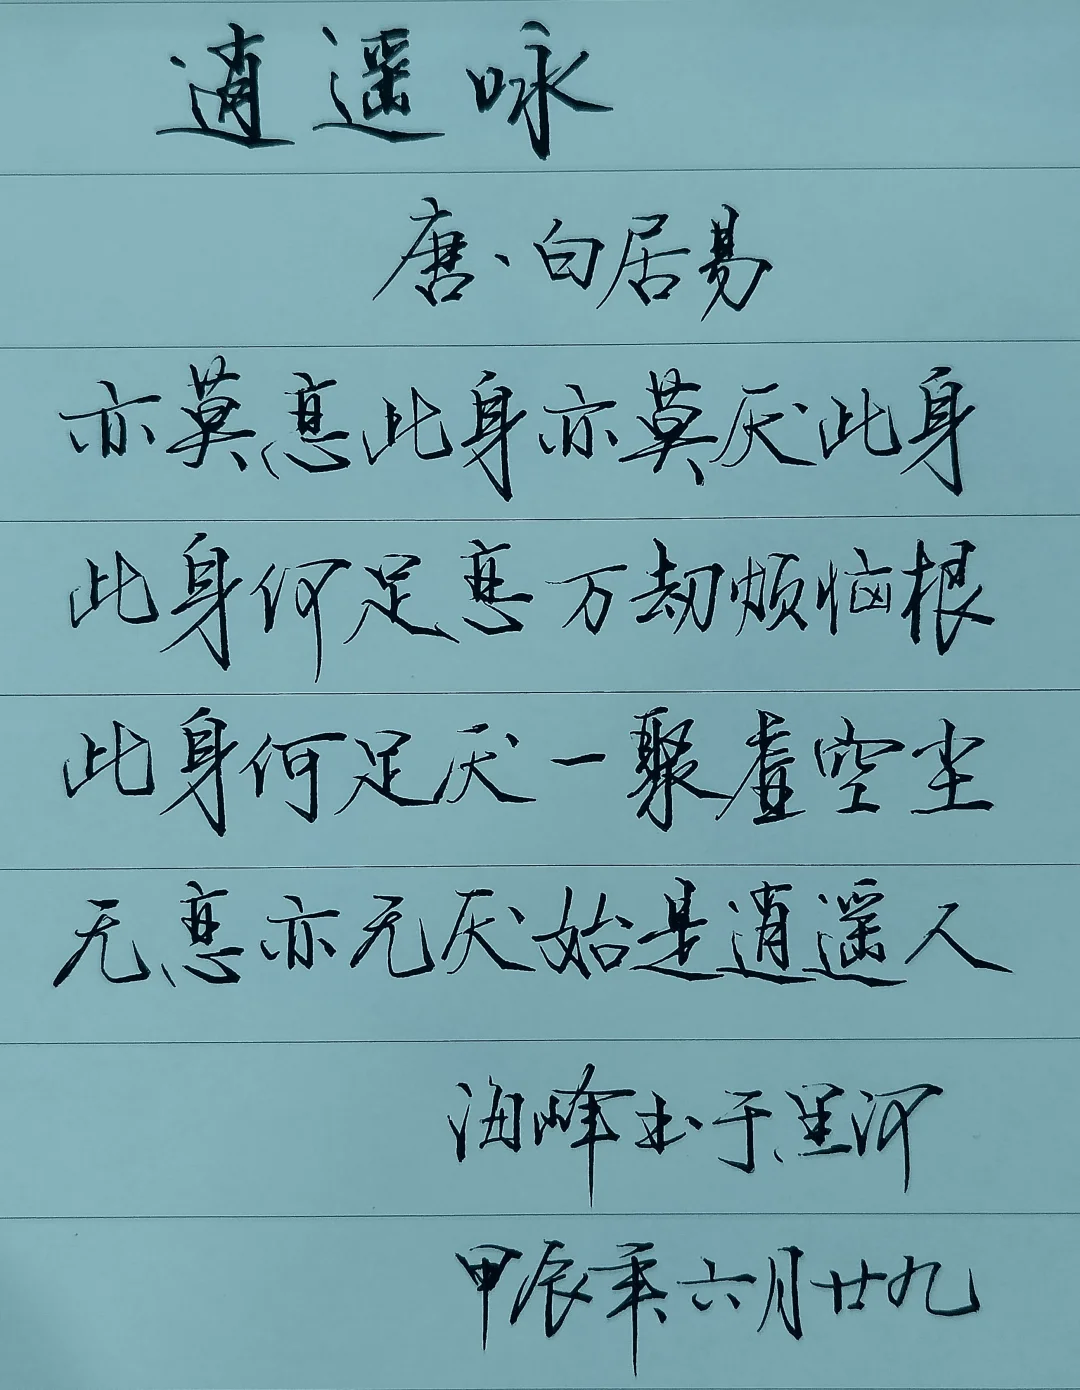 逍遥咏
唐、白居易
亦莫恋此身亦莫厌此身
此身何足恋万劫烦恼根
此身何足厌一聚虚空尘
无恋亦无厌始是逍遥人
海峰书于黑河
甲辰年六月廿九